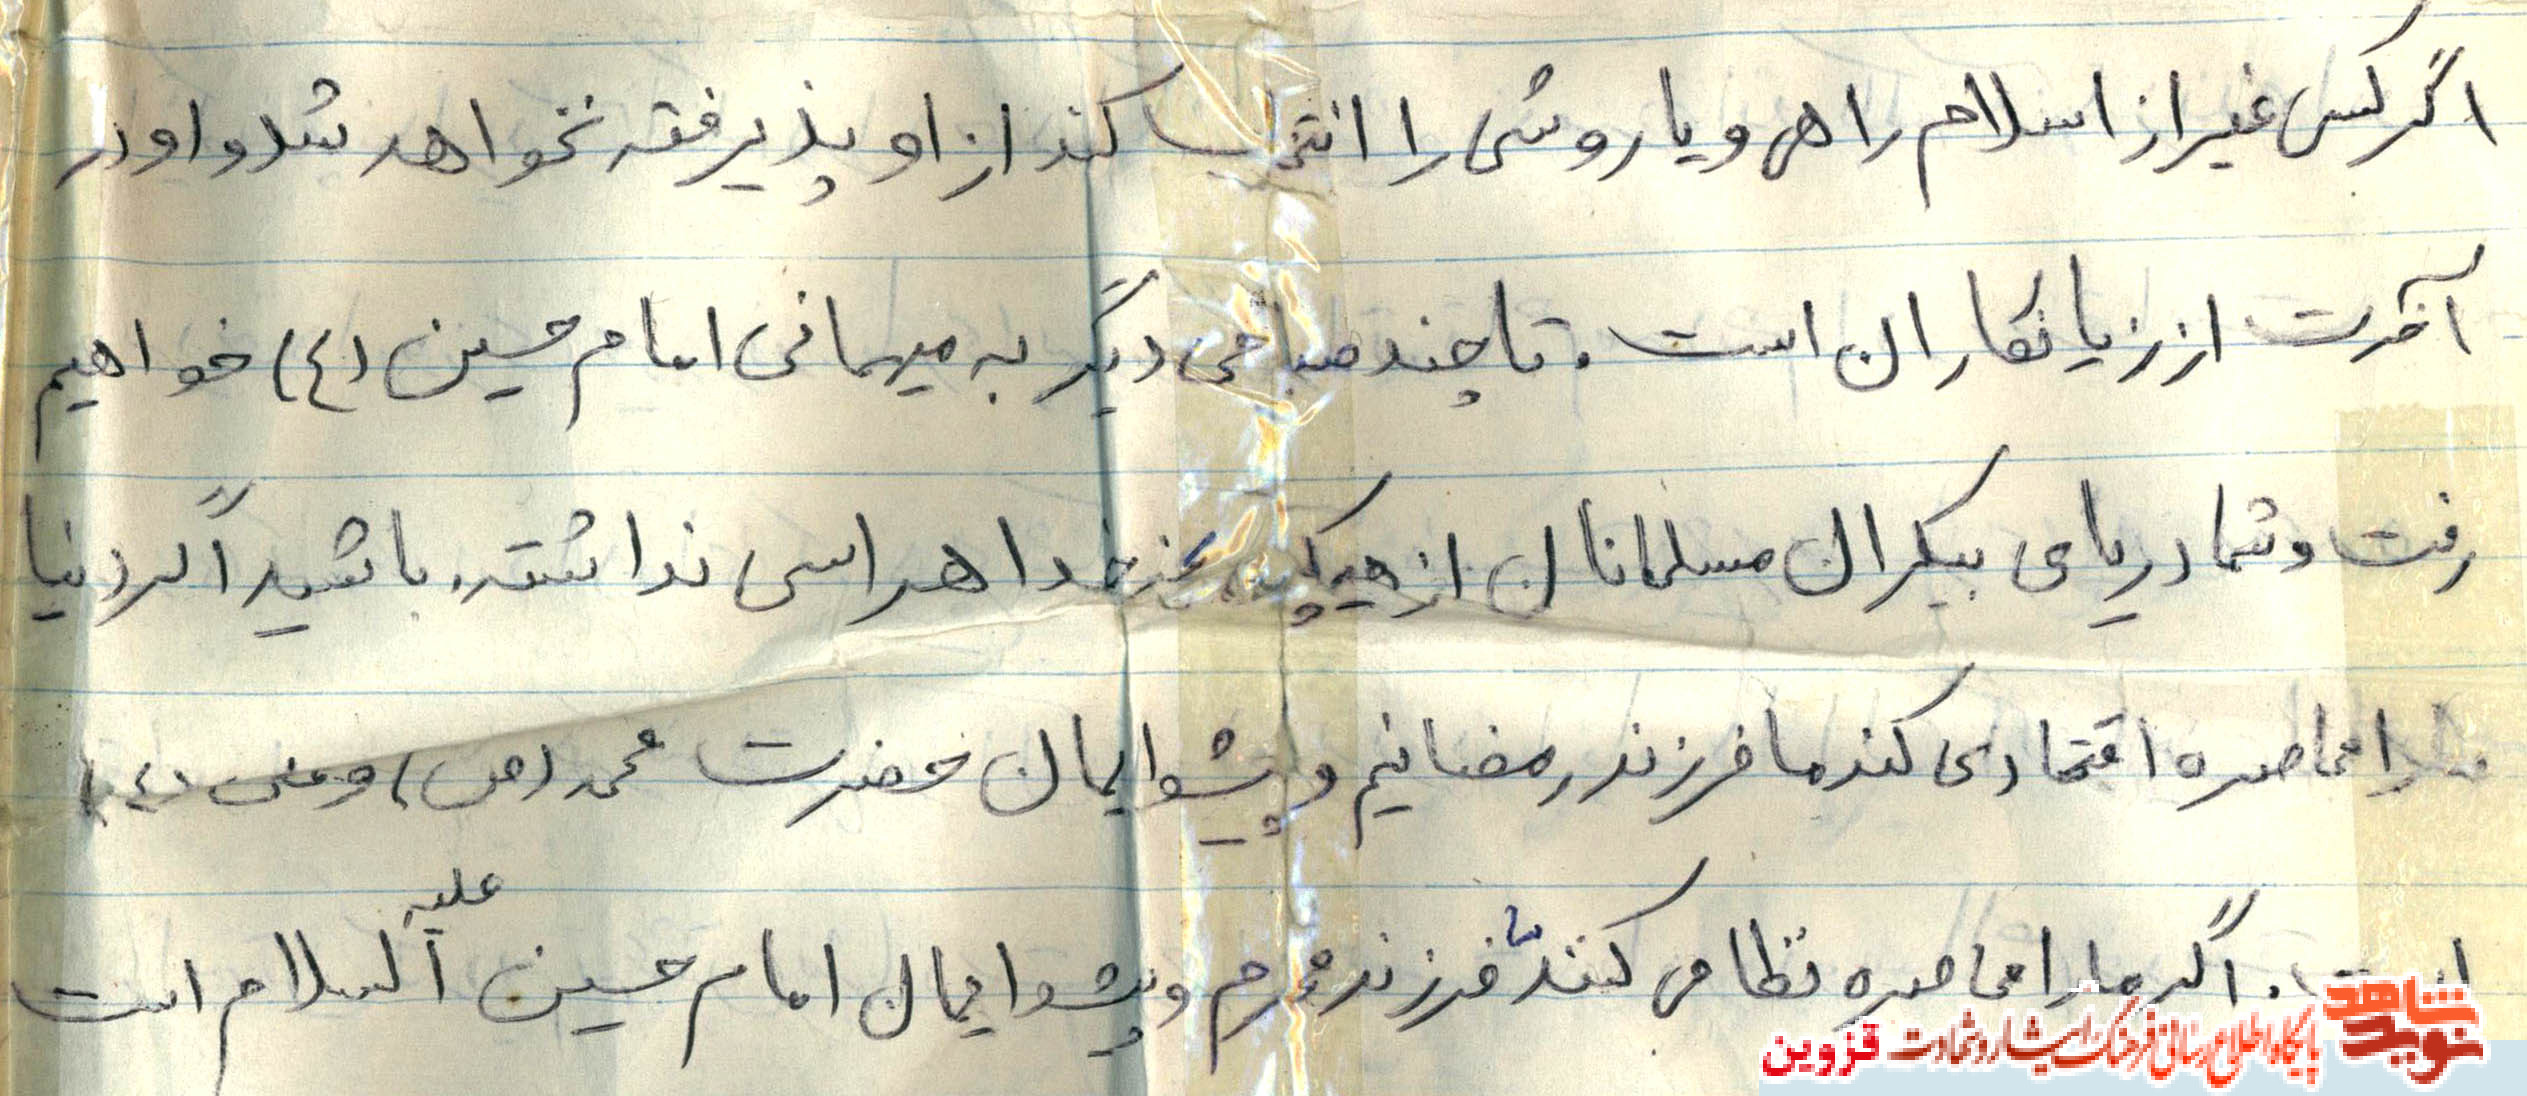 اگر کسی غیر از اسلام راهی و یا روشی را انتخاب کند از او پذیرفته نخواهد شد و او در
آخرت از زیانکاران است. تا چند صباحی دیگر به میهمانی امام حسین (ع) خواهیم
رفت و شما دریای بیکران مسلمانان از هیچکس خدا هراسی نداشته باشید اگر دنیا
ما را محاصره اقتصادی کند ما فرزند رمضانیم و پیشوایمان حضرت محمد (ص) و علی (ع)
است. اگر ما را محاصره نظامی کنند ما فرزند محرم و پیشوایمان امام حسین علیه السلام است
نوید شاهد
پایگاه اطلاع رسانی فرهنگ ایثار و شهادت قزوین